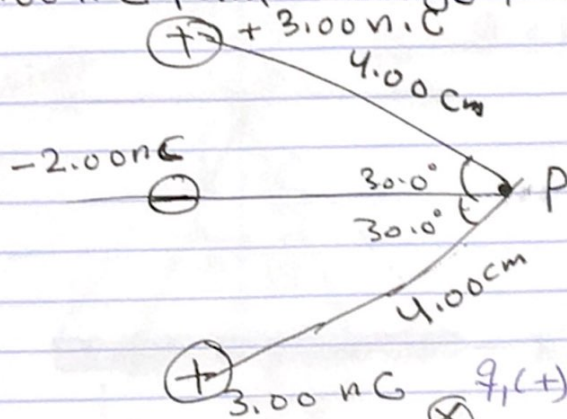 + 3.00 n.C
4.00 cm
-2.00nC
30.0°
P
30.0°
4.00cm
3.00 nC
q,(+)